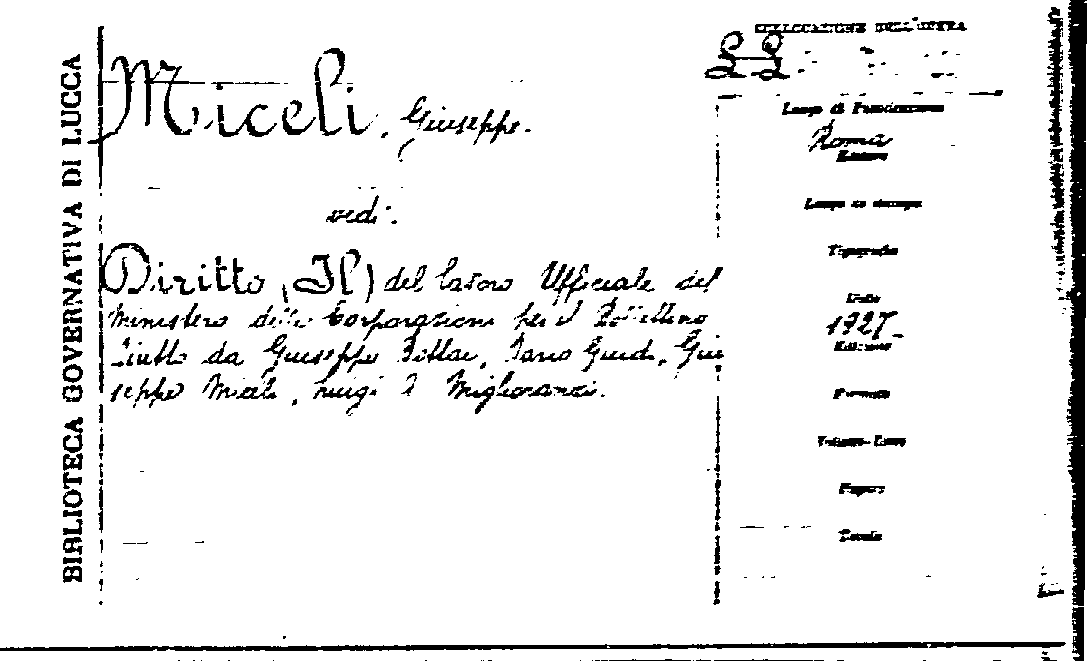 BIBLIOTECA GOVERNATIVA DI LUCCA
Miceli, Giuseppe.
vedi:
Diritto (Il) del lavoro Ufficiale del
Ministero delle Corporazioni per il Bollettino
Diretto da Giuseppe Bottai, Dario Guidi, Giu
seppe Miceli, Luigi Miglioranzi.
COLLOCAZIONE DELL'OPERA
Luogo di Pubblicazione
Roma
Editore
Luogo di stampa
Tipografia
Data
1927
Edizione
Formato
Volume-Tomo
Pagine
Tavole